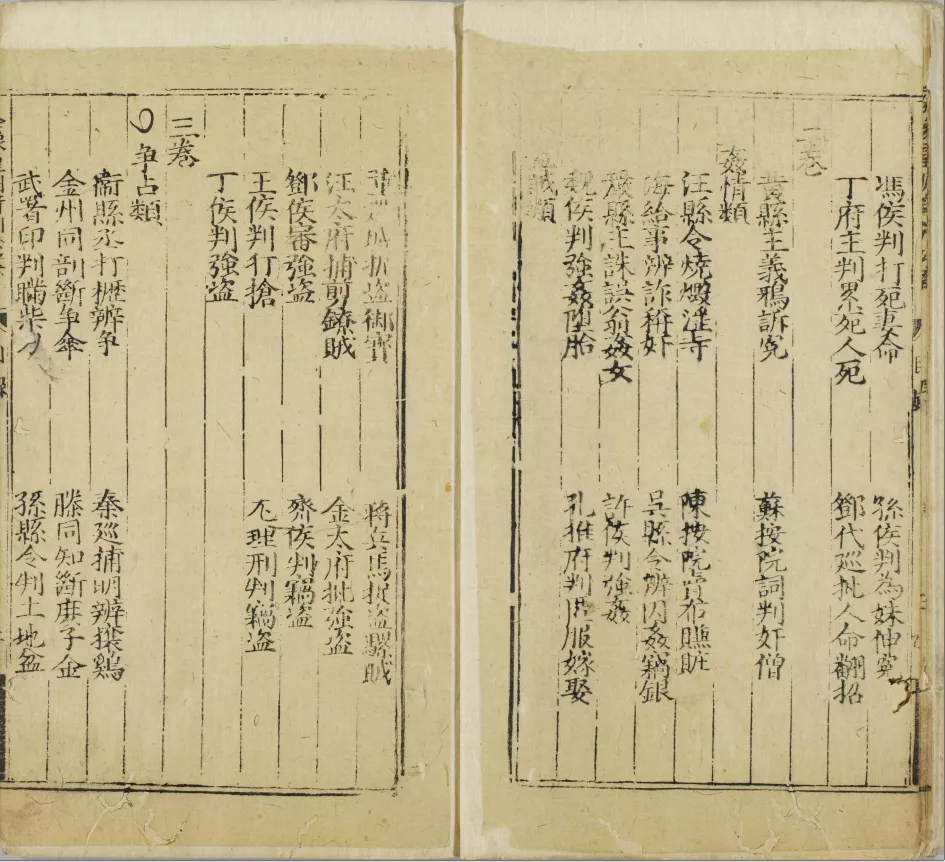 馮侯判打死妻命　孫侯判為妹伸寃
丁府主判累死人死　鄧代巡批人命翻招
二卷
黄縣主義鴉訴寃　蘇按院詞判奸僧
姦情類
汪縣令燒燬淫寺　陳按院賣布賺賍
海給事辨詐稱奸　吳縣令辨因姦竊銀
縣主誅誤翁姦女　許侯判強姦
魏侯判強姦堕胎　孔推府判匿服嫁娶
賊類
巡城捉盗御寶　蔣兵馬捉盗騾賊
汪太府捕剪鐐賊　金太府批強盗
鄧侯審強盗　齊侯判竊盗
王侯判打搶　尢理刑判竊盗
丁侯判強盗
三卷
争占類
衛縣丞打櫪辨争　秦巡捕明辨攘鷄
金州同剖斷争傘　滕同知斷庶子金
武署印判瞞柴刀　孫縣令判土地盆